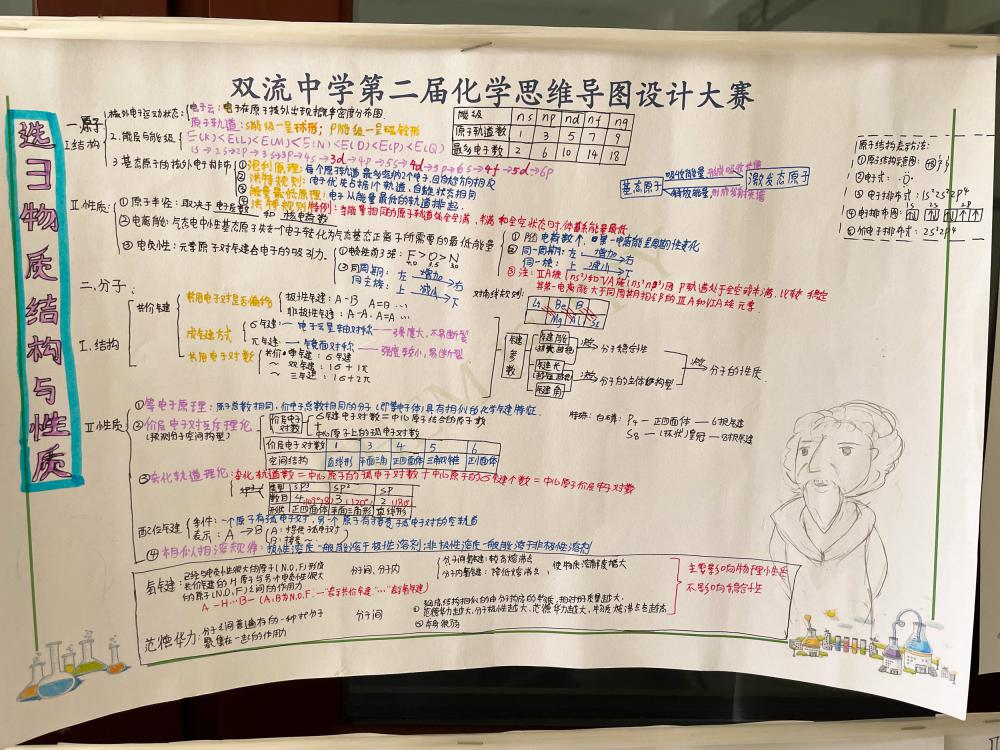 双流中学第二届化学思维导图设计大赛
选3物质结构与性质
一.原子
I.结构
1.核外电子运动状态:
电子云:电子在原子核外出现概率密度分布图.
原子轨道:S能级一呈球形; P能级一呈哑铃形
2.能层与能级:
E(K)<E(L)<E(M)<E(N)<E(O)<E(P)<E(Q)
1s→2s→2p→3s→3p→4s→3d→4p→5s→4d→5p→6s→4f→5d→6p
能级 ns np nd nf ng
原子轨道数 1 3 5 7 9
最多电子数 2 6 10 14 18
3.基态原子的核外电子排布
①泡利原理:每个原子轨道最多容纳2个电子,且自旋方向相反
②洪特规则:电子优先占据1个轨道,自旋状态相同
③能量最低原理:电子从能量最低的轨道排起.
④洪特规则特例:当能量相同的原子轨道处于全满、半满和全空状态时,体系能量最低
基态原子
吸收能量,形成吸收光谱
释放能量,形成发射光谱
激发态原子
原子结构表示方法:
①原子结构简图:
②电子式:
③电子排布式: 1s²2s²2p⁴
④电子排布图:
1s 2s 2p
⑤价电子排布式: 2s²2p⁴
II.性质:
①原子半径:取决于电子层数和核电荷数
②电离能:气态电中性基态原子失去一个电子转化为气态基态正离子所需要的最低能量
①随电荷数↑,第一电离能呈周期性变化
②同一周期: 左 增加 右
同一族: 上 减小 下
③注:IIA族(ns²)和VA族(ns²np³)因p轨道处于全空或半满,比较稳定
其第一电离能大于同周期相邻的IIIA和VIA族元素
③电负性:元素原子对键合电子的吸引力.
①电负性前3强: F>O>N
4.0 3.5 3.0
②同周期: 左 增加 右
同主族: 上 减小 下
对角线规则:
Li Be B
Mg Al Si
二.分子
I.结构
共价键
共用电子对是否偏移
极性键: A-B A=B …
非极性键: A-A. A=A …
成键方式
σ键: 一电子云呈轴对称——强度大,不易断裂
π键: 一镜面对称——强度较小,易断裂
共用电子对数
共价单键: σ键
~双键: 1σ+1π
~三键: 1σ+2π
键参数
键能
键长
键角
决定
分子稳定性
决定
分子的立体结构型
决定
分子的性质
II.性质
①等电子原理:原子总数相同,价电子总数相同的分子(即等电子体)具有相似的化学键特征.
特殊:白磷: P₄—正四面体—6根共价键
S₈—(环状)皇冠—8根共价键
②价层电子对互斥理论
(预测分子空间构型)
价层电子对数
σ键电子对数=中心原子结合的原子数
+
中心原子上的孤电子对数
价层电子对数 2 3 4 5 6
空间结构 直线形 平面三角 正四面体 三角双锥 正八面体
③杂化轨道理论:杂化轨道数=中心原子的孤电子对数+中心原子的σ键个数=中心原子价层电子对数
类型 sp³ sp² sp
数目 4(109°28′) 3(120°) 2(180°)
形状 正四面体形 平面三角形 直线形
配位键
条件:一个原子有孤电子对,另一个原子有接受孤电子对的空轨道
表示: A→B (A:提供孤电子对
B:接受~
④相似相溶规律:极性溶质一般能溶于极性溶剂;非极性溶质一般能溶于非极性溶剂
氢键:
已经与电负性很大的原子(N.O.F)形成
共价键的H原子与另个电负性很大
的原子(N.O.F)之间的作用力
A-H…B-(A,B为N.O.F.“—”表示共价键“…”表示氢键)
分子间,分子内
分子间氢键: 较高熔沸点
分子内氢键: 降低熔沸点,
使物质溶解度增大
范德华力:
分子之间普遍存在的一种使分子
聚集在一起的作用力
分子间
①组成结构相似的由分子构成的物质,相对分子质量越大,
范德华力越大,分子极性越大,范德华力越大,物质熔沸点也越高
②本身很弱
主要影响物理性质
不影响稳定性